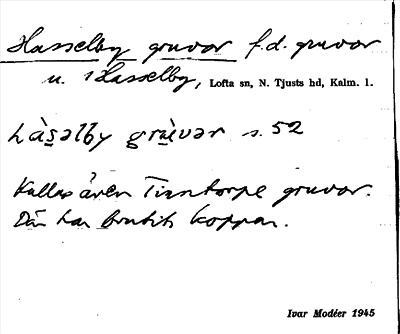 Hasselby gruvor f.d. gruvor
u. Hasselby, Lofta sn, N. Tjusts hd, Kalm. l.
hàsəlby grùvər s. 52
Kallas även Tinntorpe gruvor.
Där har brutits koppar.
Ivar Modéer 1945